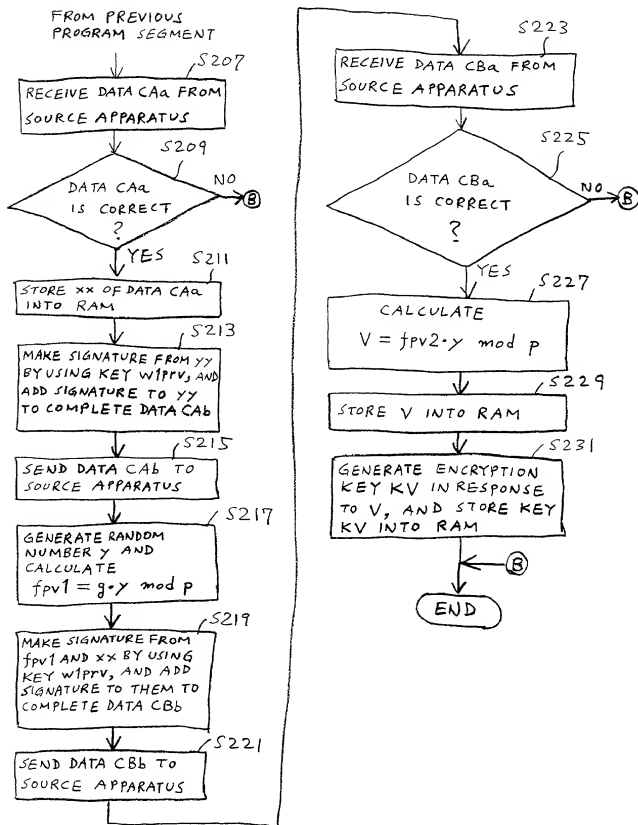 FROM PREVIOUS
PROGRAM SEGMENT
S207
RECEIVE DATA CAa FROM
SOURCE APPARATUS
S209
DATA CAa
IS CORRECT
?
NO
B
YES
S211
STORE xx OF DATA CAa
INTO RAM
S213
MAKE SIGNATURE FROM yy
BY USING KEY w1prv, AND
ADD SIGNATURE TO yy
TO COMPLETE DATA CAb
S215
SEND DATA CAb TO
SOURCE APPARATUS
S217
GENERATE RANDOM
NUMBER y AND
CALCULATE
fpv1 = g·y mod p
S219
MAKE SIGNATURE FROM
fpv1 AND xx BY USING
KEY w1prv, AND ADD
SIGNATURE TO THEM TO
COMPLETE DATA CBb
S221
SEND DATA CBb TO
SOURCE APPARATUS
S223
RECEIVE DATA CBa FROM
SOURCE APPARATUS
S225
DATA CBa
IS CORRECT
?
NO
B
YES
S227
CALCULATE
V = fpv2·y mod p
S229
STORE V INTO RAM
S231
GENERATE ENCRYPTION
KEY KV IN RESPONSE
TO V, AND STORE KEY
KV INTO RAM
B
END